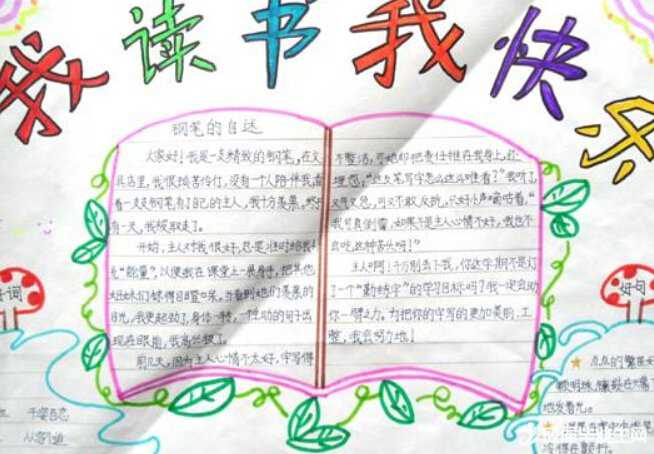 我读书我快乐
钢笔的自述
大家好！我是一支精致的钢笔，在文
具店里，我很孤苦伶仃，没有一个人陪伴我，看
着一支支钢笔有了自己的主人，我十分羡慕，终于
有一天，我被取走了。
开始，主人对我很好，总是准时给我
充“能量”，以便我在课堂上一展身手，把其他
姐妹们惊得目瞪口呆。
目光，我更起劲了，身体一转，一个生动的句子出
现在眼前，我高兴极了。
前几天，因为主人心情不太好，字写得
不整洁，可她却把责任推在我身上，还
埋怨：“这支笔写字怎么这么难看？”我听了
又气又急，可又不敢反抗，只好小声嘀咕着，“
我可真倒霉，如果不是主人心情不好，我也不
会吃这种苦头呀！”
主人啊！千万别丢下我，你这学期不是订
了一个“勤练字”的学习目标吗？我一定会助
你一臂之力。为把你的字写的更加美丽，工
整，我会努力地！
好词
千姿百态
好句
点点的繁星好
颗明珠，镶嵌在
地发着光。